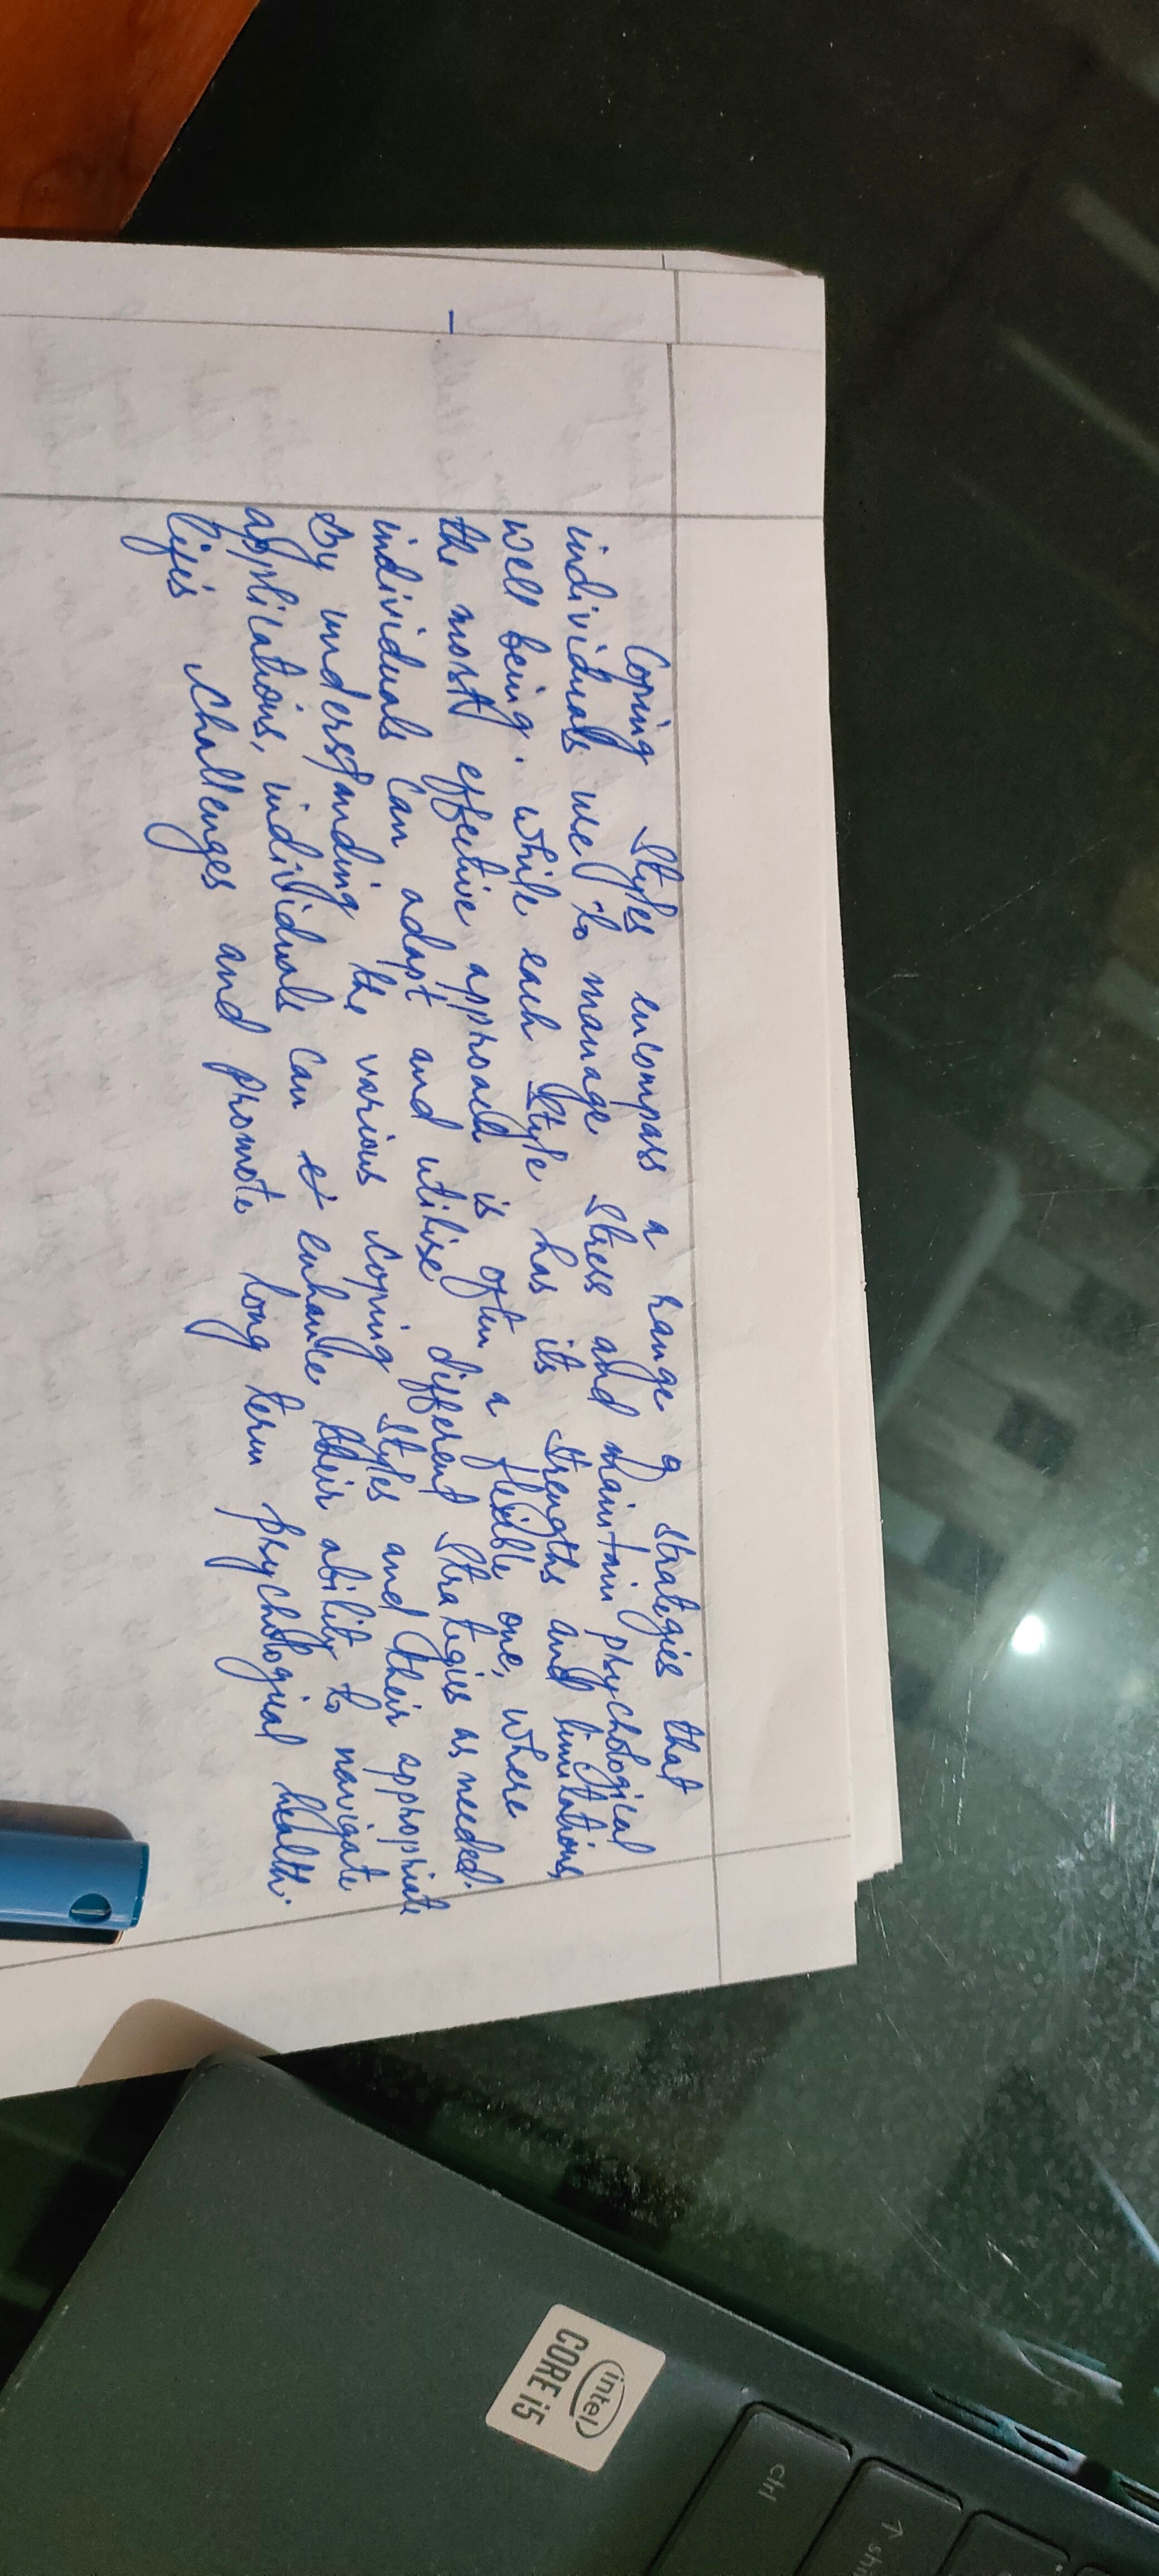 Coping Styles encompass a range of strategies that
individuals use to manage stress and maintain psychological
well being. while each style has its strengths and limitations,
the most effective approach is often a flexible one, where
individuals can adapt and utilise different strategies as needed.
By understanding the various coping styles and their appropriate
applications, individuals can enhance their ability to navigate
life's challenges and promote long term psychological health.
intel
CORE i5
ctrl